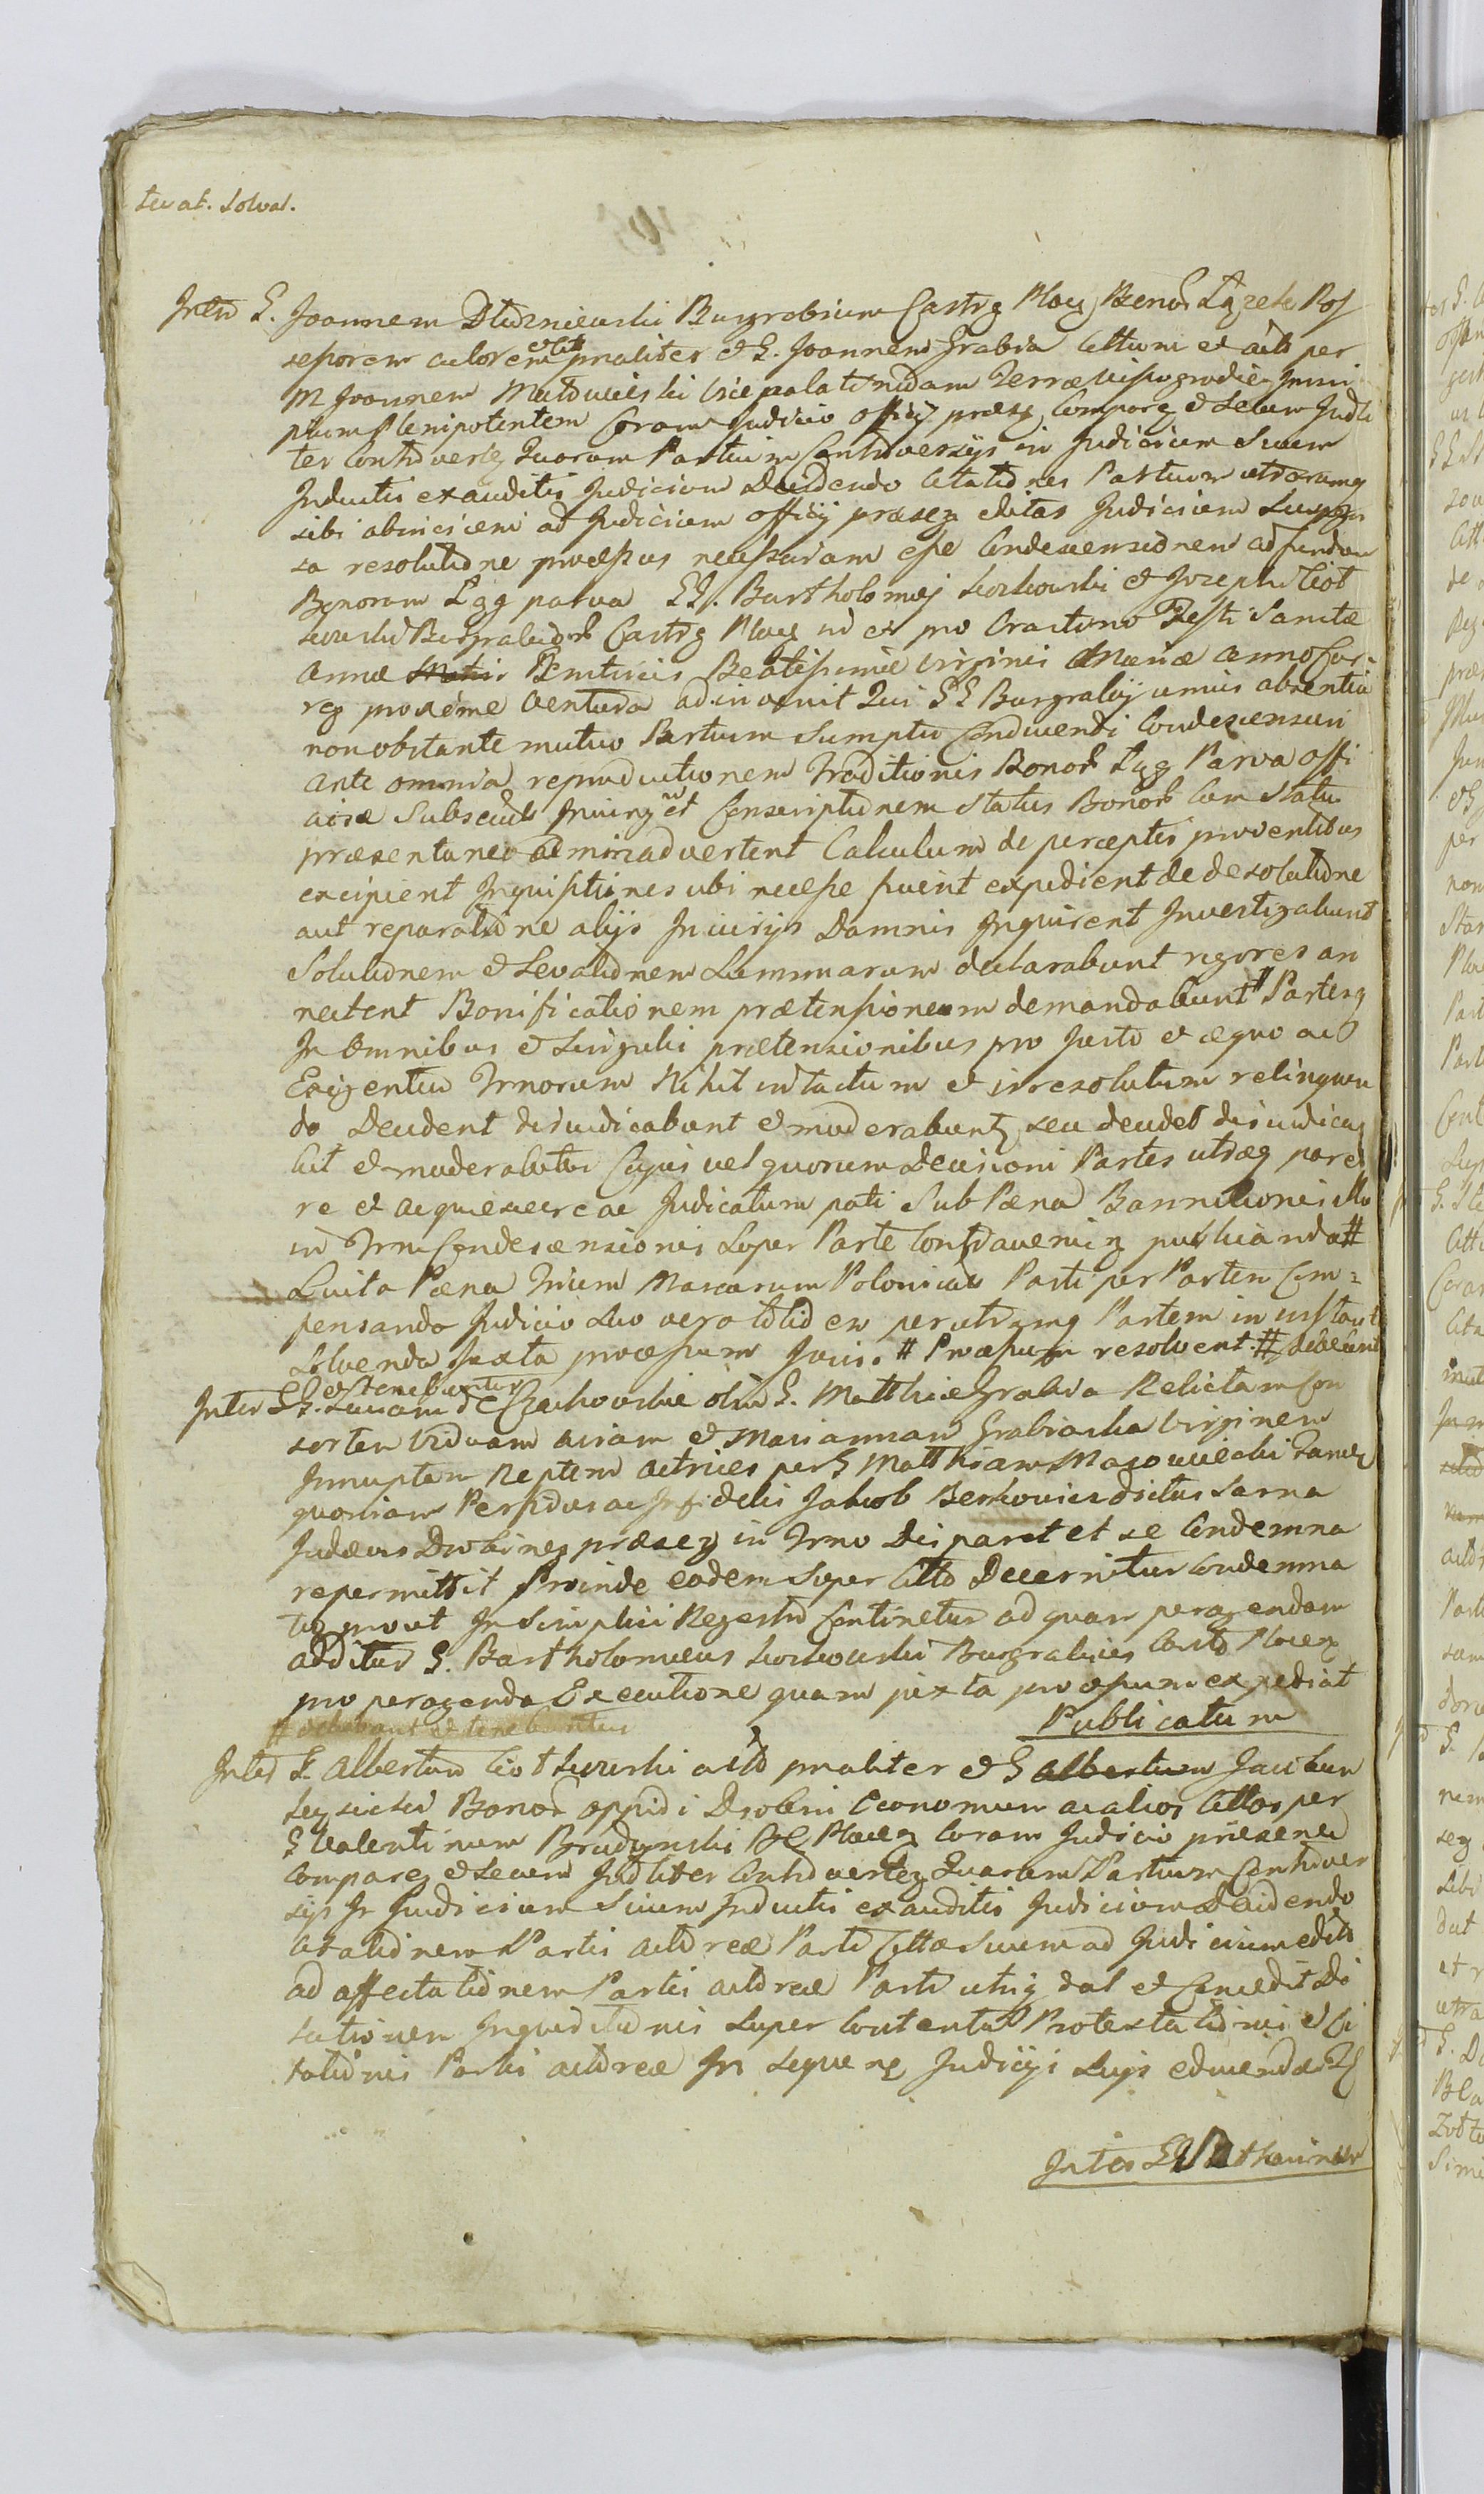 Levat. Solvat.
Inter G. Joannem Dłużniewski Burgrabium Castrg Ploc Bonor Łągzela Pos
sesorem actorem et Citt praliter et G. Joannem Grabia Cittum et acto per
M Joannem Mutowieski Vicepalatinidam Terræ Wyszogrodien Juni
pium Plenipotentem Coram Judicio officij præsen Comporg et secum Judli
ter Controverten Quorum Partium Controversijs in Judicium Suum
Inductis exauditis Judicium Decidendo Citationes Partium utrarumq
sibi abinvicem ad Judicium officij præsen editas Judicium Suspen
sa resolutione processus necessariam esse Condescensionem ad fundum
Bonorum Łąg parva GG. Bartholomej Sochowski et Josephi Ciot
kowski Burgrabiorb Castrg Ploc in et pro Crastino Festi Sanctæ
Annæ Matris Genitricis Beatissimæ Virginis Mariæ anno Cur-
reg proxime venturo adinvenit Qui GG Burgrabij unius absentia
non obstante mutuo Partium Sumptu Conducendi Condescensuri
ante omnia reproductionem Traditionis Bonor Łąg Parva offi
ciosæ Subsecut et Conscriptionem Status Bonor Cum Statu
præsentaneo adminadvertent Calculum de perceptis proventibus
excipient Inquisitiones ubi necesse fuerit expedient de desolatione
aut reparatione alijs Injurijs Damnis Inquirent Investigabunt
Solutionem et Levationem Summarum declarabunt rigores an
nectent Bonificationem prætensionum demandabunt # Partesq
In omnibus et Singulis prætensionibus pro Justo et æquo ac
Exigentia Trnorum Nihil intactum et irresolutum relinquen
do Decident dijudicabunt et moderabunt seu decidet dijudicat
bit et moderabitur Cujus vel quorum Decisioni Partes utræq pare
re et acquiescere ac Judicatum pati Sub Pæna Bannitionis illo
in Trno Condescensionis Super Parte Contravenien publicanda #
Luita Pæna Trium Marcarum Polonical Parti per Partem Com=
pensanda Judicio Suo vero totidem per utramq Partem in instant
Solvenda Juxta processum Juris. # Processum resolvent. # debebunt
et tenebuntur
Inter GG. Lucam de Czachowskie olim G. Matthiæ Grabia Relictam Con
sortem Viduam aviam et Mariannam Grabianka Virginem
Innuptam Neptem actrices per G Matthiam Mazowiecki Tandem
quoniam Perfidus ac Infidelis Jakob Berkowicz dictus Sarna
Judæus Drobinen præsen in Trno Disparet et se Condemna
re permittit Proinde eodem Super Citto Decernitur Condemna
tio prout In Simplici Regestro Continetur ad quam peragendam
additur G. Bartholomeus Sochowski Burgrabius Castr Ploce
pro peragenda Executione quam juxta processum expediat
# debebunt et tenebuntur Publicatum
Inter G. Albertum Ciotkowski acto praliter et G Albertum Jacobum
Bonor oppidi Drobni Œconomum ac alios Cittos per
G Valentinum Brudzynski Ploce Coram Judicio præsenci
Comparen et Secum Judliter Controverten Quarum Partium Controver
sijs In Judicium Suum Inductis exauditis Judicium Decidendo
Citationem Partis actoreæ Parti Cittæ Suum ad Judicium edito
ad affectationem Partis actoreæ Parti utriq dat et Concedit Di
lationem Inquisitionis Super Contentis Protestationis et Ci
tationis Partis actoreæ In Sequenq Judicijs Suijs educendas
Inter GG Catharinam